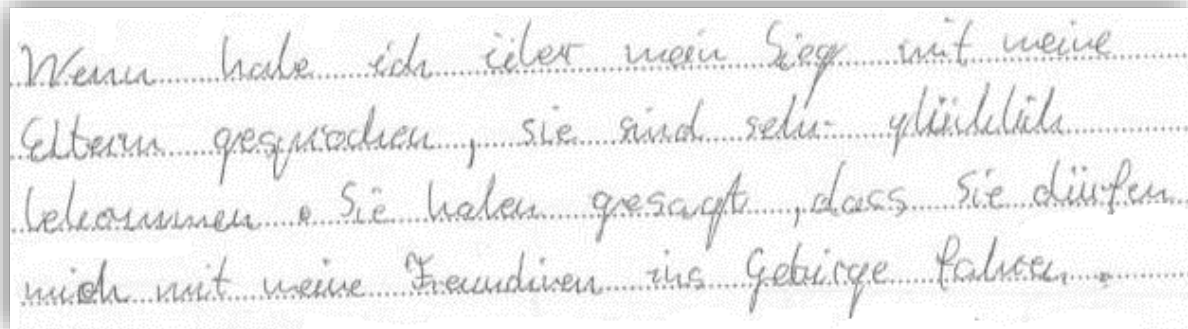 Wenn habe ich über mein Sieg mit meine
Eltern gesprochen, sie sind sehr glücklich
bekommen. Sie haben gesagt, dass Sie dürfen
mich mit meine Freundinen ins Gebirge fahren.